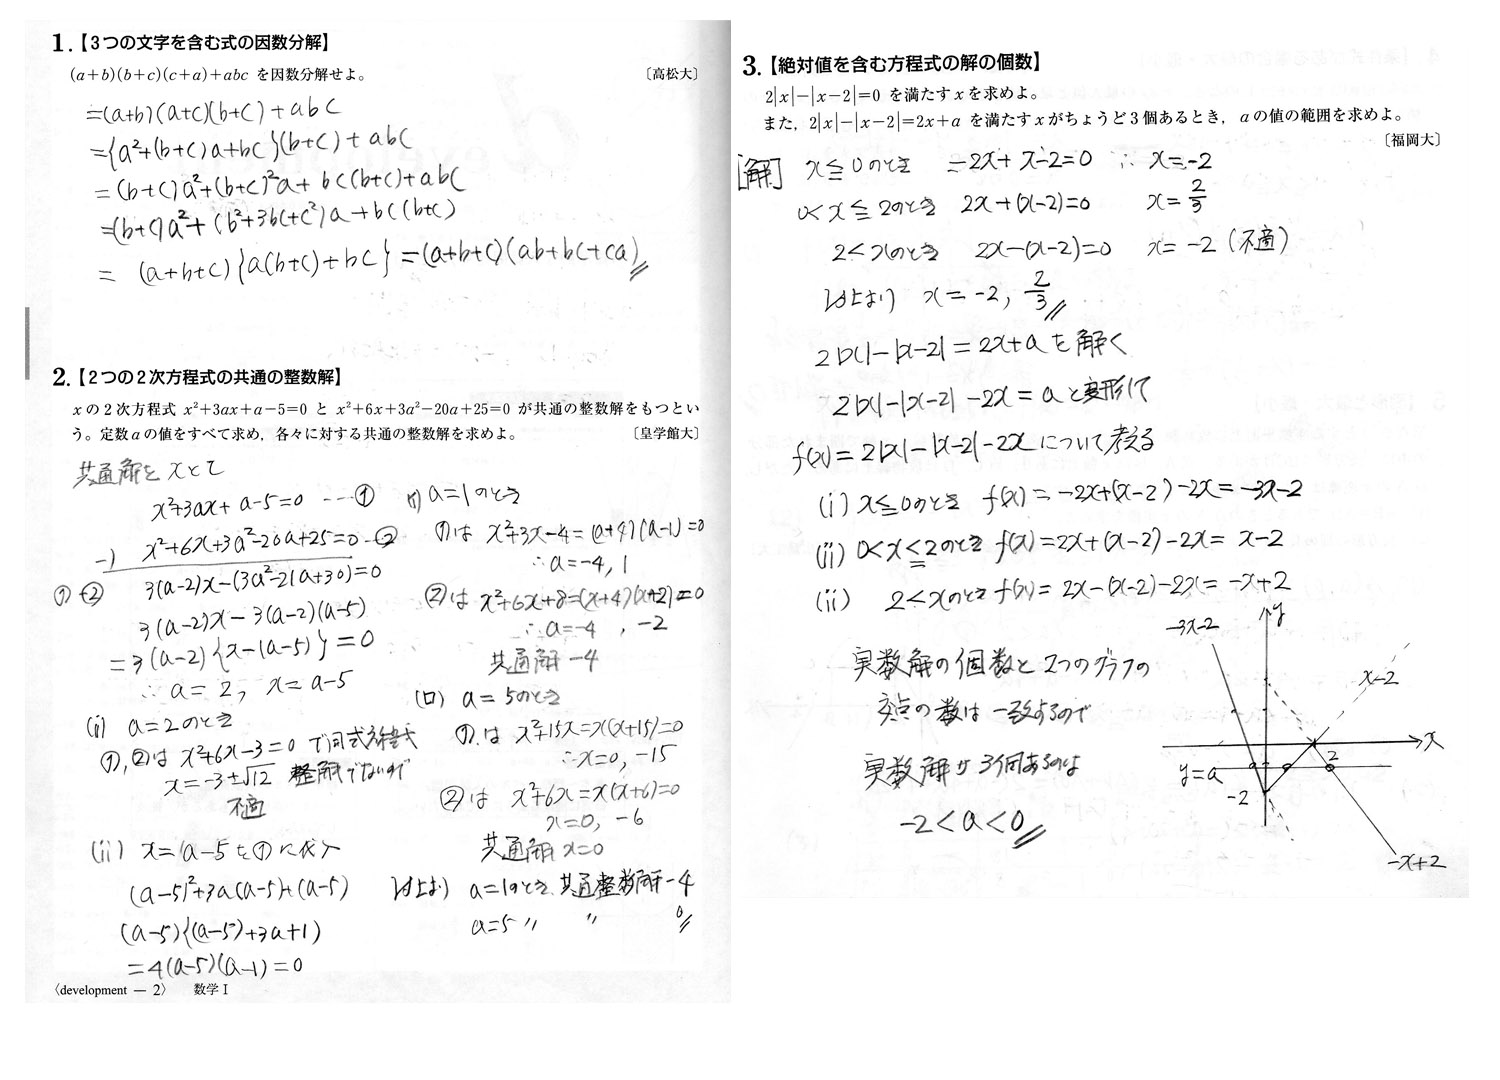 1.【3つの文字を含む式の因数分解】
(a+b)(b+c)(c+a)+abc を因数分解せよ。 〔高松大〕
=(a+b)(a+c)(b+c)+abc
={a²+(b+c)a+bc}(b+c)+abc
=(b+c)a²+(b+c)²a+bc(b+c)+abc
=(b+c)a²+(b²+3bc+c²)a+bc(b+c)
= (a+b+c){a(b+c)+bc}=(a+b+c)(ab+bc+ca)
2.【2つの2次方程式の共通の整数解】
xの2次方程式 x²+3ax+a−5=0 と x²+6x+3a²−20a+25=0 が共通の整数解をもつとい
う。定数aの値をすべて求め，各々に対する共通の整数解を求めよ。 〔皇学館大〕
共通解をxとして
x²+3ax+a-5=0 ---①
-) x²+6x+3a²-20a+25=0 -②
①-② 3(a-2)x-(3a²-21a+30)=0
3(a-2)x-3(a-2)(a-5)
=3(a-2){x-(a-5)}=0
∴ a=2, x=a-5
(i) a=2のとき
①,②は x²+6x-3=0 で同式方程式
x=-3±√12 整解でないので
不適
(ii) x=(a-5を①に代入
(a-5)²+3a(a-5)+(a-5)
(a-5){(a-5)+3a+1)
=4(a-5)(a-1)=0
(イ) a=1のとき
①は x²+3x-4=(a+4)(a-1)=0
∴a=-4, 1
②は x²+6x+8=(x+4)(x+2)=0
∴a=-4, -2
共通解 -4
(ロ) a=5のとき
①は x²+15x=x(x+15)=0
∴x=0, -15
②は x²+6x=x(x+6)=0
x=0, -6
共通解 x=0
以上より a=1のとき 共通整数解 -4
a=5 〃 〃 0
〈development — 2〉 数学Ⅰ
3.【絶対値を含む方程式の解の個数】
2|x|−|x−2|=0 を満たすxを求めよ。
また，2|x|−|x−2|=2x+a を満たすxがちょうど3個あるとき，aの値の範囲を求めよ。
〔福岡大〕
[解] x≦0のとき -2x+x-2=0 ∴ x=-2
0<x≦2のとき 2x+(x-2)=0 x=2/3
2<xのとき 2x-(x-2)=0 x=-2 (不適)
以上より x=-2, 2/3
2|x|-|x-2|=2x+aを解く
2|x|-|x-2|-2x=aと変形して
f(x)=2|x|-|x-2|-2xについて考える
(i) x≦0のとき f(x)=-2x+(x-2)-2x=-3x-2
(ii) 0<x≦2のとき f(x)=2x+(x-2)-2x= x-2
(ii) 2<xのとき f(x)=2x-(x-2)-2x=-x+2
実数解の個数と2つのグラフの
交点の数は一致するので
実数解が3個あるのは
-2<a<0
y
-3x-2
x-2
x
y=a
2
-2
-x+2